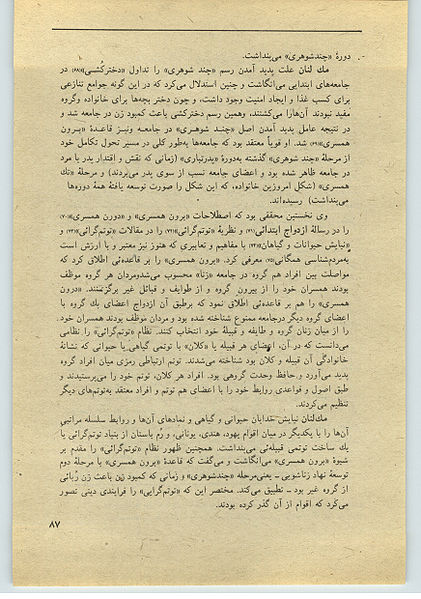 دورهٔ «چندشوهری» می‌پنداشت.
مك لنان علت پدید آمدن رسم «چند شوهری» را تداول «دخترکُشی» (۶۸) در
جامعه‌های ابتدایی می‌انگاشت و چنین استدلال می‌کرد که در این گونه جوامع تنازعی
برای کسب غذا و ایجاد امنیت وجود داشت، و چون دختر بچه‌ها برای خانواده وگروه
مفید نبودند آن‌هارا می‌کشتند، وهمین رسم دخترکشی باعث کمبود زن در جامعه شد و
در نتیجه عامل پدید آمدن اصل «چنـد شوهـری» در جامعـه ونیـز قاعدهٔ «بـرون
همسری» (۶۹) شد. او قویاً معتقد بود که جامعه‌ها به‌طور کلی در مسیر تحول تکامل خود
از مرحلهٔ «چند شوهری» گذشته به‌دورهٔ «پدرتباری» (زمانی که نقش و اقتدار پدر یا مرد
در جامعه ظاهر شده بود و اعضای جامعه نسب از سوی پدر می‌بردند) و مرحلهٔ «تك
همسری» (شکل امروزین خانواده، که این شکل را صورت توسعه یافتهٔ همهٔ دوره‌ها
می‌پنداشت) رسیده‌اند.
وی نخستین محققی بود که اصطلاحات «برون همسری» و «درون همسری» (۷۰)
را در رسالهٔ ازدواج ابتدائی (۷۱) و نظریهٔ «توتم‌گرائی» (۷۲) را در مقالات «توتم‌گرائی» (۷۳) و
«نیایش حیوانات و گیاهان» (۷۴) با مفاهیم و تعابیری که هنوز نیز معتبر و با ارزش است
به‌مردم‌شناسی همگانی (۷۵) معرفی کرد. «برون همسری» را بر قاعده‌ئی اطلاق کرد که
مواصلت بین افراد هم گروه در جامعه «زنا» محسوب می‌شدومردان هر گروه موظف
بودند همسران خود را از بیرون گروه و از طوایف و قبائل غیر برگزینند. «درون
همسری» را هم بر قاعده‌ئی اطلاق نمود که برطبق آن ازدواج اعضای یك گروه با
اعضای گروه دیگر درجامعه ممنوع شناخته شده بود و مردان موظف بودند همسران خود
را از میان زنان گروه و طائفه و قبیلهٔ خود انتخاب کنند. نظام «توتم‌گرائی» را نظامی
می‌دانست که در آن، اعضای هر قبیله یا «کلان» با توتمی گیاهی یا حیوانی که نشانهٔ
خانوادگی آن قبیله و کلان بود شناخته می‌شدند. توتم ارتباطی رمزی میان افراد گروه
پدید می‌آورد و حافظ وحدت گروهی بود. افراد هر کلان، توتم خود را می‌پرستیدند و
طبق اصول و قواعدی روابط خود را با اعضای هم توتم و افراد معتقد به‌توتم‌های دیگر
تنظیم می‌کردند.
مك‌لنان نیایش خدایان حیوانی و گیاهی و نمادهای آن‌ها و روابط سلسله مراتبی
آن‌ها را با یکدیگر در میان اقوام یهود، هندی، یونانی، و رُم باستان از بنیاد توتم‌گرائی یا
یك ساخت توتمی قبیله‌ئی می‌پنداشت. همچنین ظهور نظام «توتم‌گرائی» را مقدم بر
شیوهٔ «برون همسری» می‌انگاشت و می‌گفت که قاعدهٔ «برون همسری» با مرحلهٔ دوم
توسعهٔ نهاد زناشویی ـ یعنی‌مرحله «چندشوهری» و زمانی که کمبود زن باعث زن رُبائی
از گروه غیر بود ـ تطبیق می‌کند. مختصر این که «توتم‌گرایی» را فرایندی دینی تصور
می‌کرد که اقوام از آن گذر کرده بودند.
۸۷